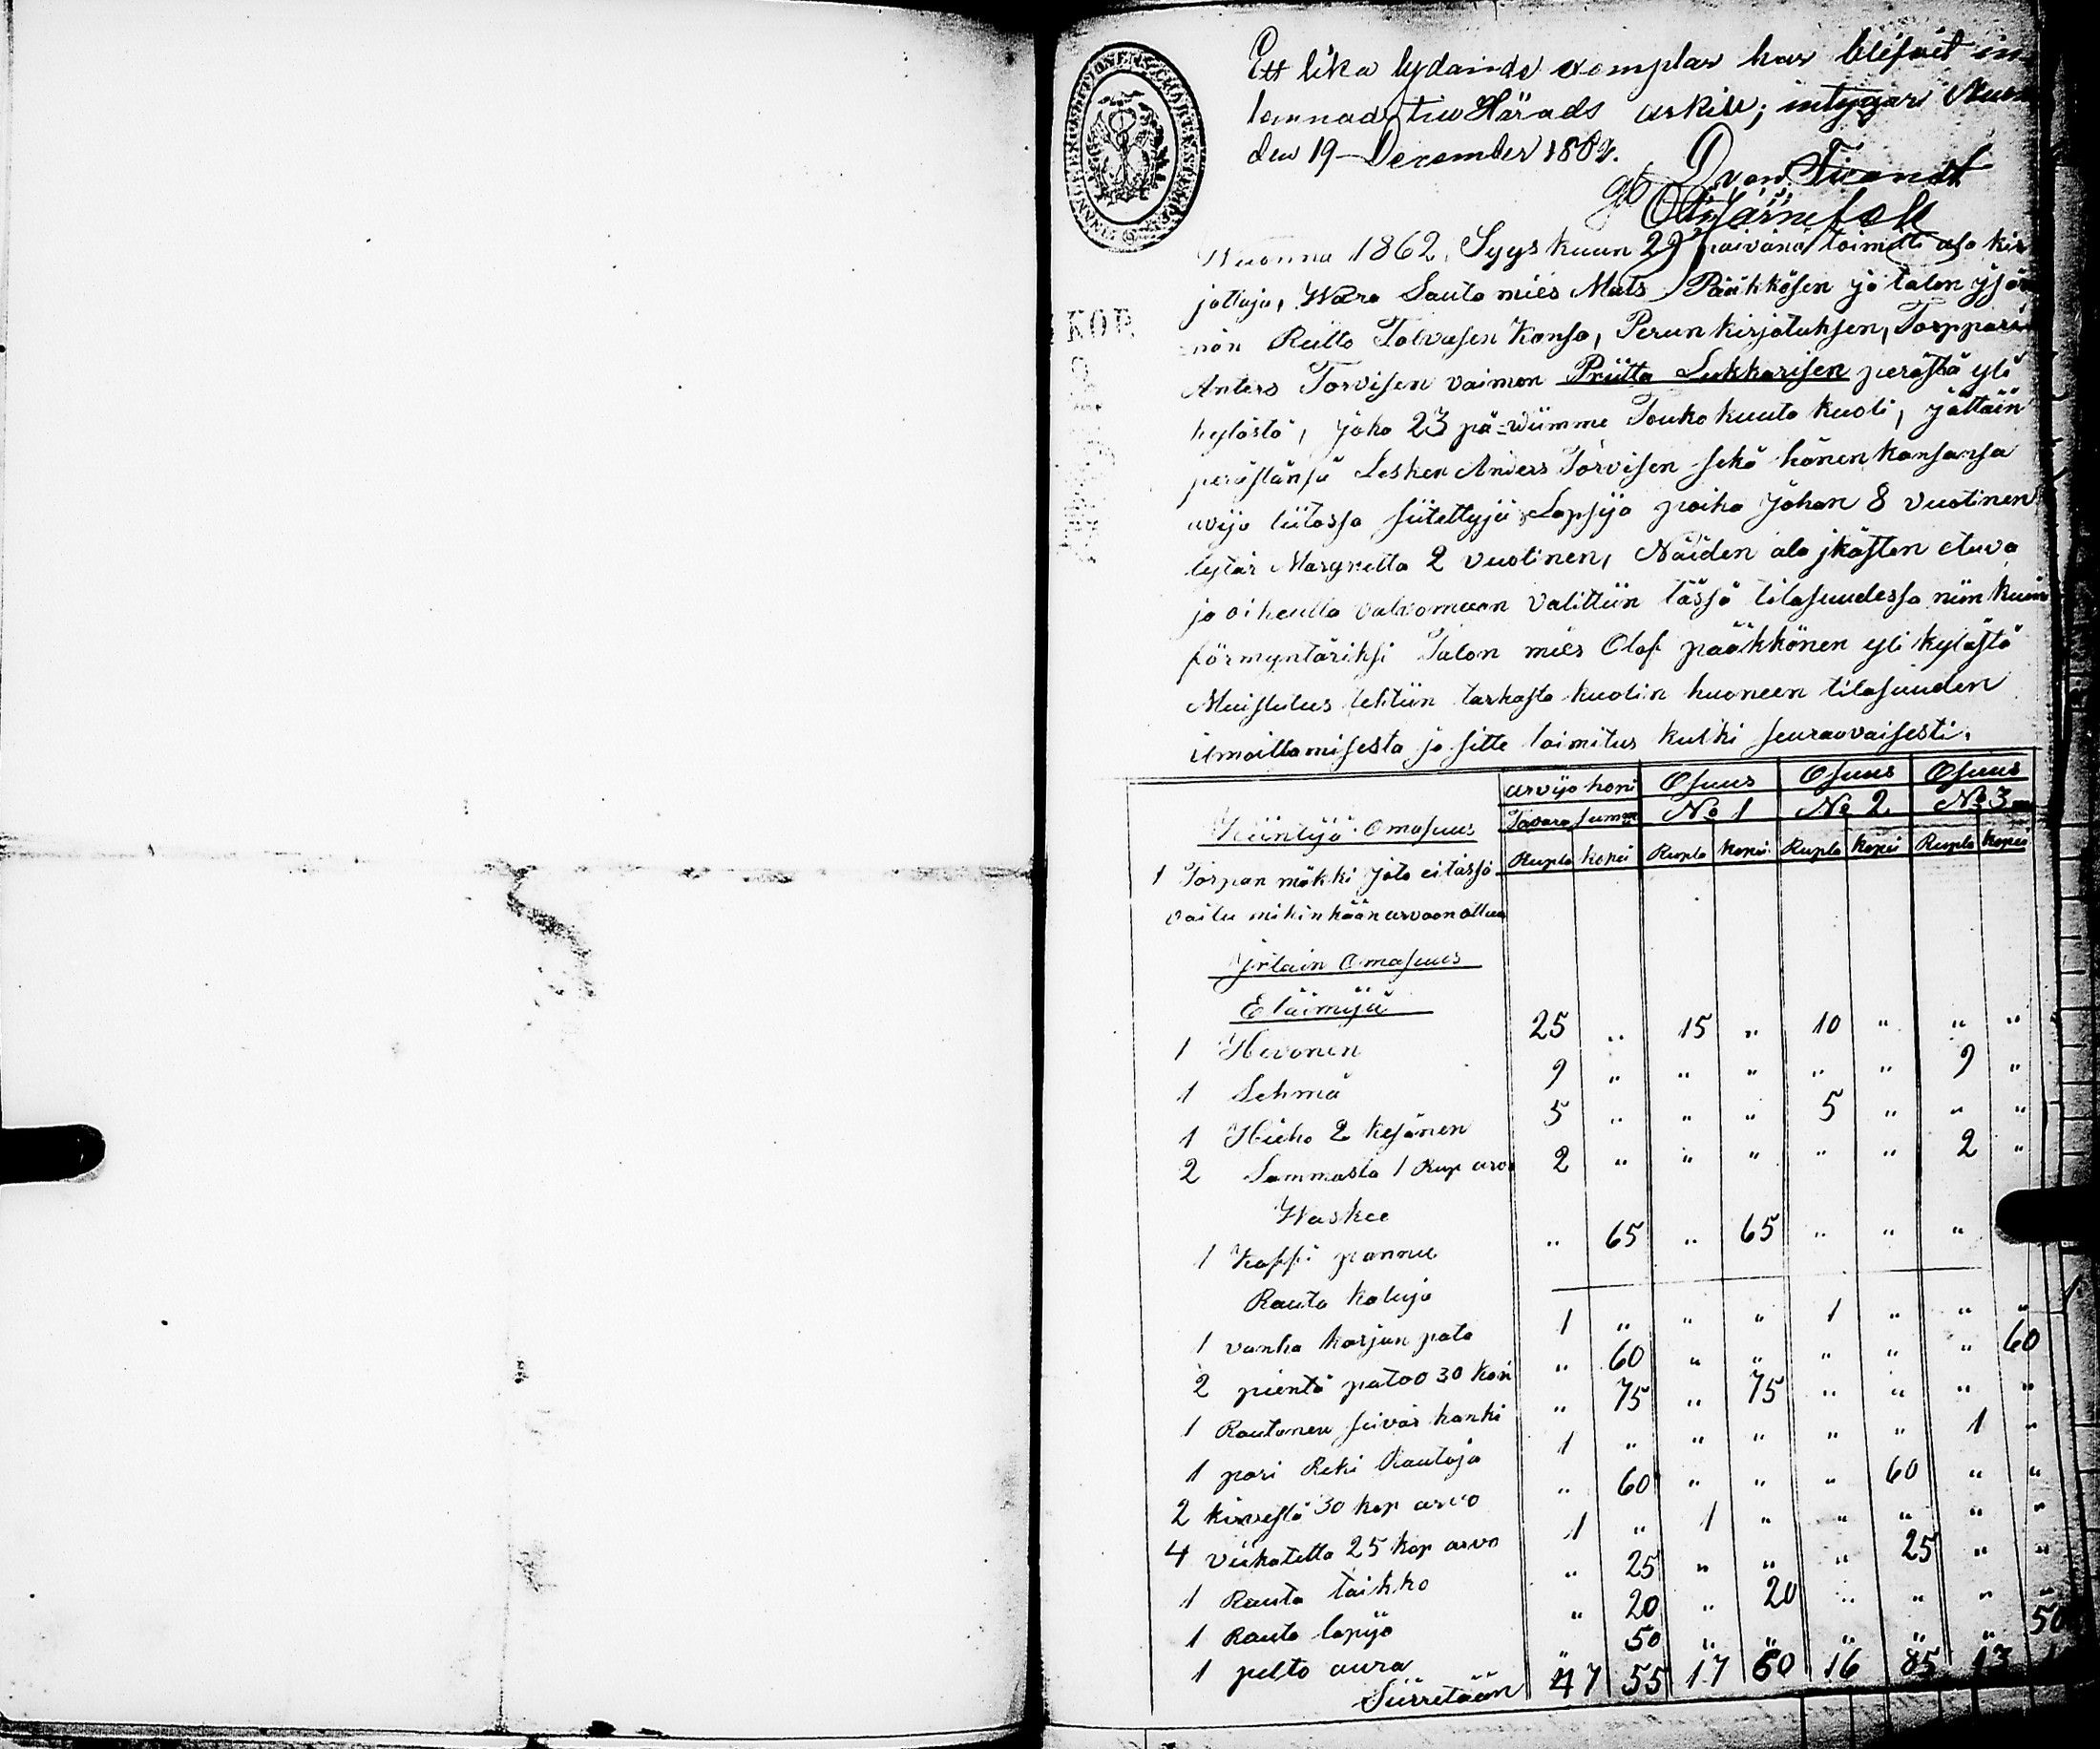 Ett lika lydande exemplar har blifvit in
lemnadt till Härads arkiv; intygar
den 19 December 1862.
D von Fieandt
Wuonna 1862 Syyskuun 29 päivänä toimitti ala kir
jottaja, Wara Lauta mies Mats Pääkkösen ja talon ysän
nän Rietto Tolvasen kansa, Perunkirjotuksen, Torppari
Anters Torvisen vaimon Priitta Lukkarisen perästä yli
kylästä, joka 23 pä-wiimme Toukokuuta kuoli, jättäin
perästänsä Lesken Anders Torvisen sekä hänen kansansa
avijo liitossa siitettyjä Lapsija poika Johan 8 vuotinen
tytär Margretta 2 vuotinen, Näiden ala jkästen etuva
ja oikeutta valvomaan valittiin tässä tilasuudessa niin kuin
förmyntäriksi Talon mies Olof pääkkönen yli kylästä
Muistutus tehtiin tarkasta kuolin huoneen tilasuuden
ilmoittamisesta ja sitte toimitus kulki seuraavaisesti.
Kiintijä Omasuus arvijo koni Osuus Osuus Osuus
Tavara summa No 1 No 2 No 3
Rupla kopei Rupla kopei Rupla kopei Rupla kopei
1 Torpan mökki jota ei tässä
voitu mihinkään arvoon ottaa
jrtain Omasuus
Eläimijä
1 Hevonen 25 " 15 " 10 " " "
1 Lehmä 9 " " " " " 9 "
1 Hieho 2 kesänen 5 " " " 5 " " "
2 Lammasta 1 Rup arvo 2 " " " " " 2 "
Waskee
1 Kaffi pannu " 65 " 65 " " "
Rauta kaluja
1 vanha karjan pata 1 " " " 1 " " "
2 pientä pataa 30 kop " 60 " " " " " 60
1 Rautanen seiväs kanki " 75 " 75 " " " "
1 pari Reki Rautoja 1 " " " " " 1 "
2 kirvestä 30 kop arvo " 60 " " " 60 " "
4 viikatetta 25 kop arvo 1 " 1 " " " " "
1 Rauta taikko " 25 " " " 25 " "
1 Rauta lapijo " 20 " 20 " " " "
1 pelto aura " 50 " " " " " 50
Siirretään 47 55 17 60 16 85 13